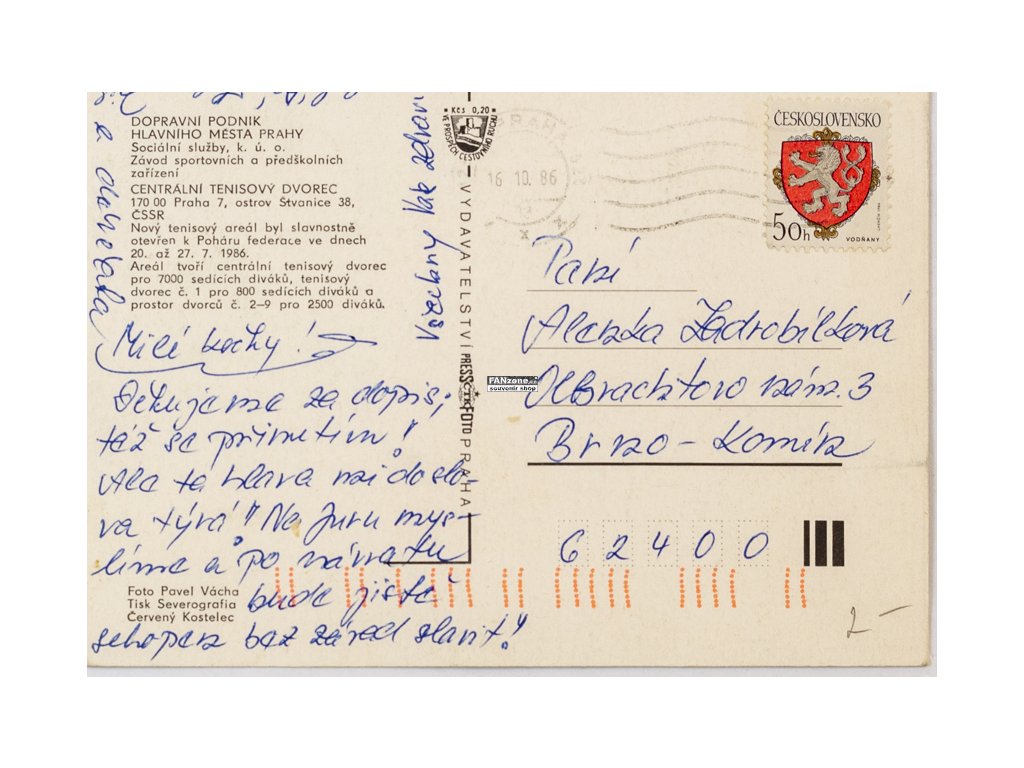 DOPRAVNÍ PODNIK
HLAVNÍHO MĚSTA PRAHY
Sociální služby, k. ú. o.
Závod sportovních a předškolních
zařízení
CENTRÁLNÍ TENISOVÝ DVOREC
170 00 Praha 7, ostrov Štvanice 38,
ČSSR
Nový tenisový areál byl slavnostně
otevřen k Poháru federace ve dnech
20. až 27. 7. 1986.
Areál tvoří centrální tenisový dvorec
pro 7000 sedících diváků, tenisový
dvorec č. 1 pro 800 sedících diváků a
prostor dvorců č. 2–9 pro 2500 diváků.
Milé kočky!
Děkujeme za dopis,
též se přimetím!
Ale ta hlava mi doslo-
va týrá! Na Juru mys-
líme a po návratu
bude jistě
schopen bez závad slavit!
Foto Pavel Vácha
Tisk Severografia
Červený Kostelec
Všechny Vás zdraví
Kčs 0,20
VE PROSPĚCH CESTOVNÍHO RUCHU
VYDAVATELSTVÍ PRESSFOTO PRAHA
ČTK
FANzone.cz
souvenir shop
PRAHA
16 10. 86
ČESKOSLOVENSKO
50h
VODŇANY
Paní
Alenka Zadrobílková
Olbrachtovo nám. 3
Brno - Komín
62400
2-